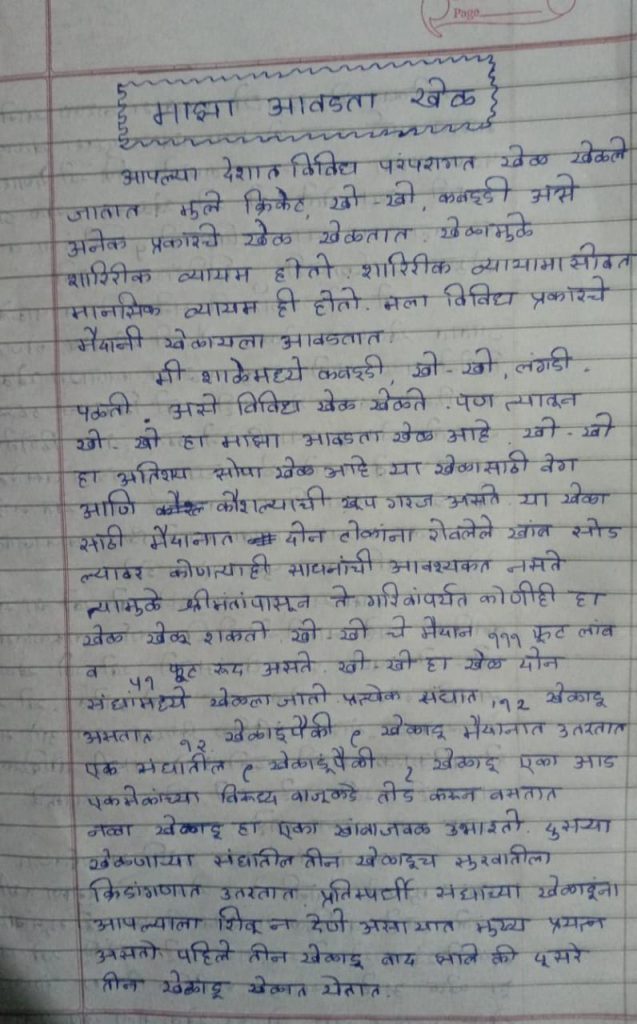 Page
माझा आवडता खेळ
आपल्या देशात विविध परंपरागत खेळ खेळले
जातात मुले क्रिकेट, खो-खो, कबड्डी असे
अनेक प्रकारचे खेळ खेळतात. खेळामुळे
शारिरीक व्यायम होतो. शारिरीक व्यायामासोबत
मानसिक व्यायम ही होतो. मला विविध प्रकारचे
मैदानी खेळायला आवडतात.
मी शाळेमध्ये कबड्डी, खो-खो, लंगडी.
पळती. असे विविध खेळ खेळते. पण त्यातून
खो-खो हा माझा आवडता खेळ आहे. खो-खो
हा अतिशय सोपा खेळ आहे या खेळासाठी वेग
आणि कौशल्याची खूप गरज असते. या खेळा
साठी मैदानात दोन टोकांना रोवलेले खांब सोड
ल्यावर कोणत्याही साधनांची आवश्यकत नसते
त्यामुळे श्रीमंतांपासून ते गरिबांपर्यत कोणीही हा
खेळ खेळू शकतो. खो-खो चे मैदान १११ फूट लांब
व ५१ फूट रूंद असते. खो-खो हा खेळ दोन
संघामध्ये खेळला जातो प्रत्येक संघात १२ खेळाडू
असतात १२ खेळाडूंपैकी ९ खेळाडू मैदानात उतरतात
एक संघातील ९ खेळाडूंपैकी ८ खेळाडू एका आड
एकमेकांच्या विरूध्द बाजूकडे तोंड करून बसतात
नववा खेळाडू हा एका खांबाजवळ उभारतो. दुसऱ्या
खेळणाऱ्या संघातील तीन खेळाडूच सुरवातीला
क्रिडांगणात उतरतात. प्रतिस्पर्धी संघाच्या खेळाडूंना
आपल्याला शिवू न देणे असा यात मुख्य प्रयत्न
असतो. पहिले तीन खेळाडू बाद झाले की दूसरे
तीन खेळाडू खेळात येतात.